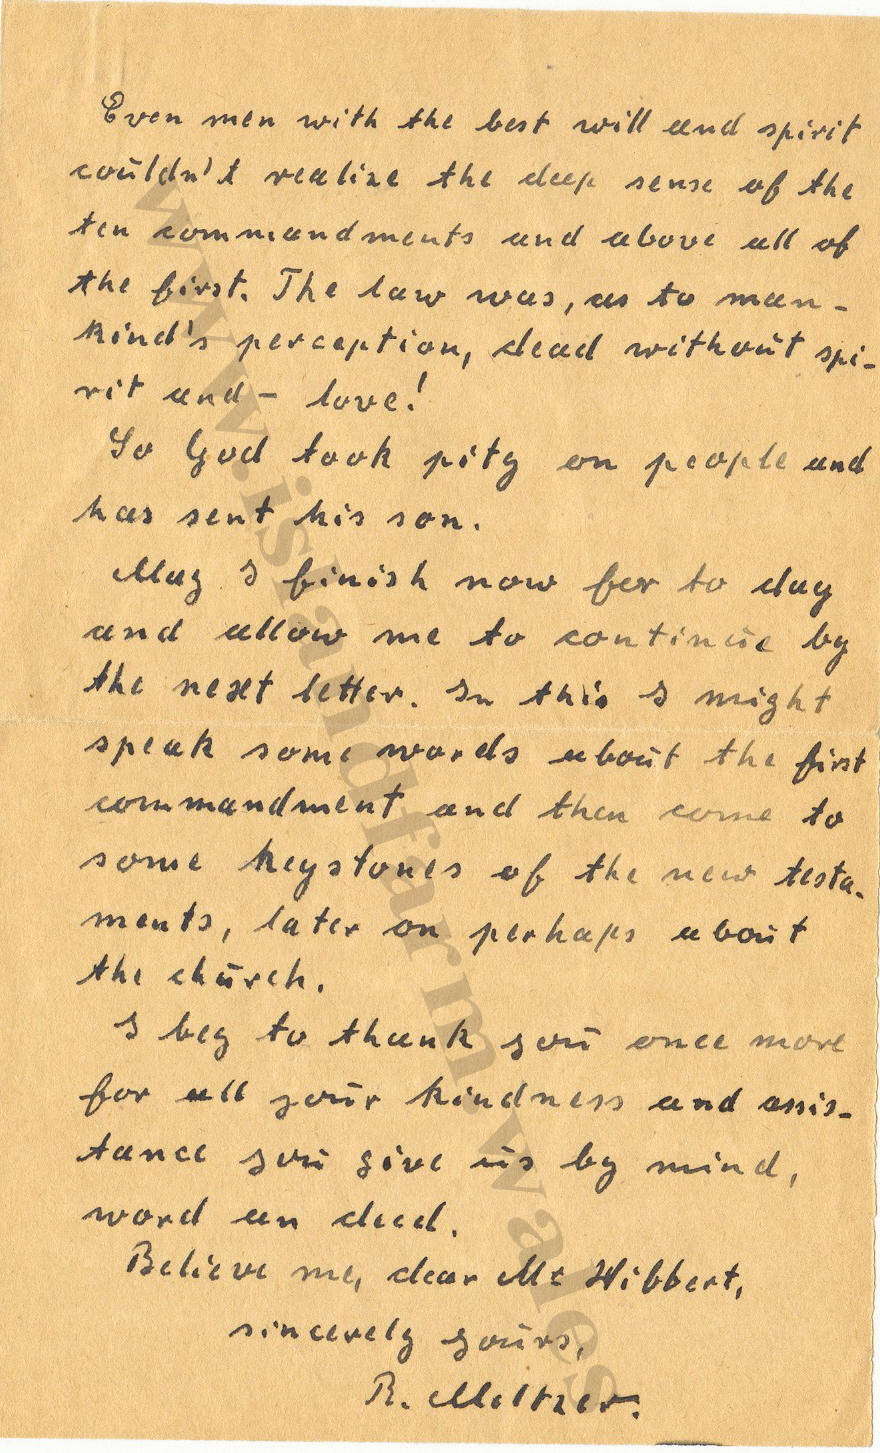 Even men with the best will and spirit
couldn't realize the deep sense of the
ten commandments and above all of
the first. The law was, as to man-
kind's perception, dead without spi-
rit and - love!
So God took pity on people and
has sent his son.
May I finish now for to day
and allow me to continue by
the next letter. In this I might
speak some words about the first
commandment and then come to
some keystones of the new testa-
ments, later on perhaps about
the church.
I beg to thank you once more
for all your kindness and assis-
tance you give us by mind,
word an deed.
Believe me, dear Mr Hibbert,
sincerely yours,
R. Meltzer.
www.islandfarm.wales